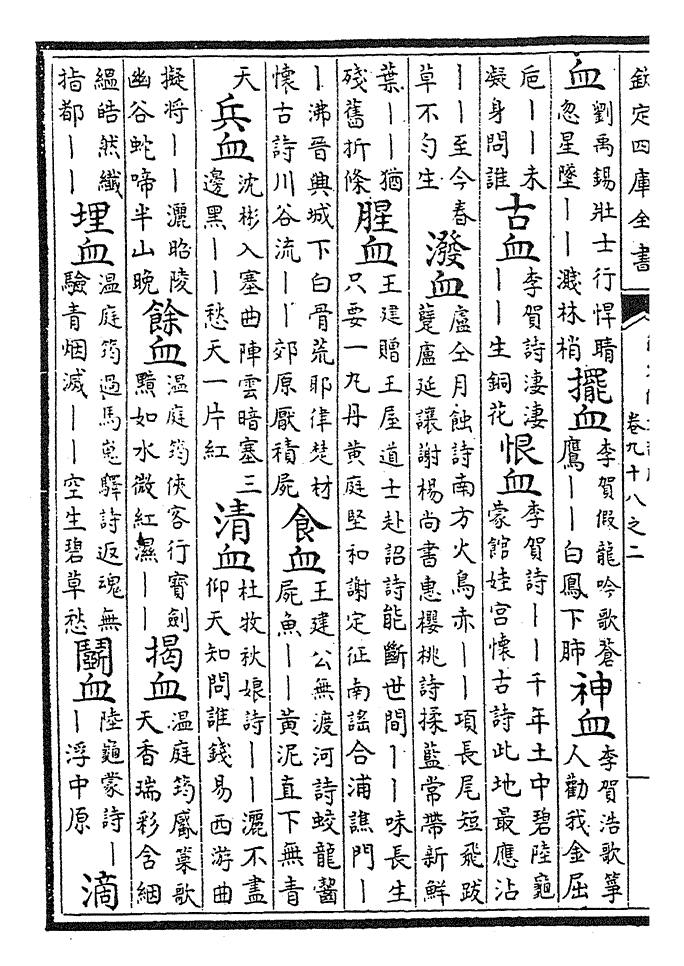 欽定四庫全書
卷九十八之二
血 劉禹錫壯士行悍睛忽星墜｜｜濺林梢 擺血 李賀假龍吟歌蒼鷹｜｜白鳳下肺 神血 李賀浩歌箏人勸我金屈
巵｜｜未凝身問誰 古血 李賀詩淒淒｜｜生銅花 恨血 李賀詩｜｜千年土中碧陸龜蒙館娃宮懷古詩此地最應沾
｜｜至今春草不勻生 潑血 盧仝月蝕詩南方火鳥赤｜｜項長尾短飛跋躠盧延讓謝楊尚書惠櫻桃詩揉藍常帶新鮮
葉｜｜猶殘舊折條 腥血 王建贈王屋道士赴詔詩能斷世間｜｜味長生只要一丸丹黄庭堅和謝定征南謡合浦譙門｜
｜沸晉興城下白骨荒耶律楚材懷古詩川谷流｜｜郊原厭積屍 食血 王建公無渡河詩蛟龍齧屍魚｜｜黄泥直下無青
天 兵血 沈彬入塞曲陣雲暗塞三邊黑｜｜愁天一片紅 清血 杜牧秋娘詩｜｜灑不盡仰天知問誰錢易西游曲
擬將｜｜灑昭陵幽谷蛇啼半山晚 餘血 温庭筠俠客行寶劍黯如水微紅濕｜｜ 揭血 温庭筠屬菓歌天香瑞彩含絪
緼皓然纖指都｜｜ 埋血 温庭筠過馬嵬驛詩返魂無驗青烟滅｜｜空生碧草愁 鬭血 陸龜蒙詩｜｜浮中原 滴